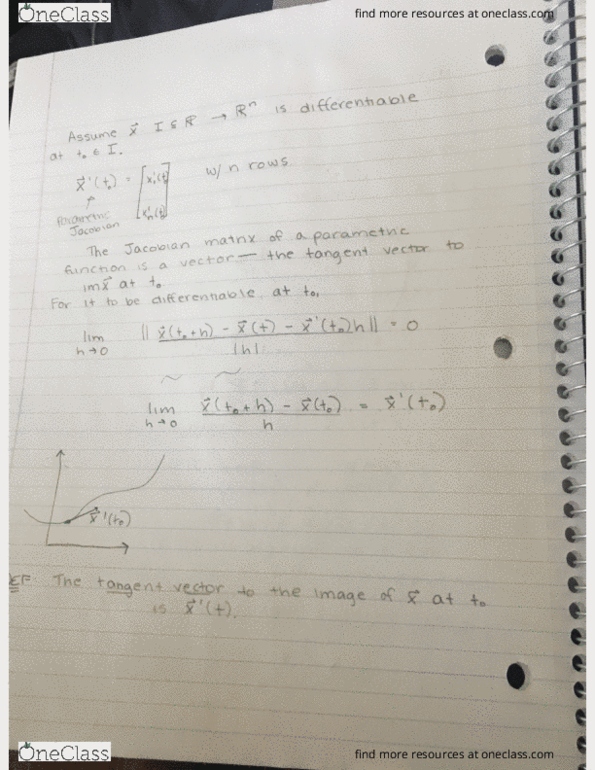 OneClass
find more resources at oneclass.com
Assume x⃗ I ⊆ ℝ → ℝⁿ is differentiable
at t₀ ∈ I.
x⃗'(t₀) = [x₁'(t) w/ n rows
xₙ'(t)]
↑
Parametric
Jacobian
The Jacobian matrix of a parametric
function is a vector — the tangent vector to
im x⃗ at t₀
For it to be differentiable at t₀,
lim h→0 || x⃗(t₀+h) - x⃗(t) - x⃗'(t₀)h || = 0
|h|
~ ~
lim h→0 x⃗(t₀+h) - x⃗(t₀) = x⃗'(t₀)
h
x⃗'(t₀)
EF The tangent vector to the image of x⃗ at t₀
is x⃗'(t).
OneClass
find more resources at oneclass.com